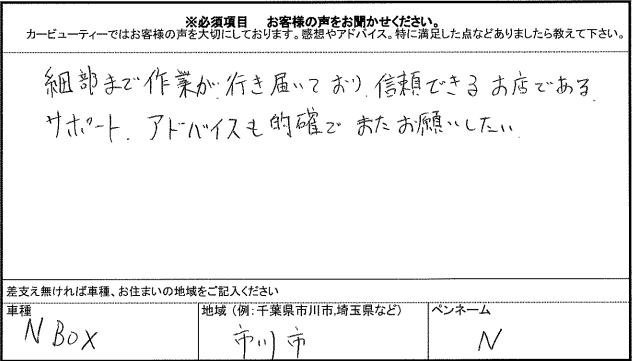 ※必須項目　お客様の声をお聞かせください。
カービューティーではお客様の声を大切にしております。感想やアドバイス。特に満足した点などありましたら教えて下さい。
細部まで作業が行き届いており、信頼できるお店である。
サポート、アドバイスも的確でまたお願いしたい。
差支え無ければ車種、お住まいの地域をご記入ください
車種　地域（例：千葉県市川市,埼玉県など）　ペンネーム
N BOX　市川市　N